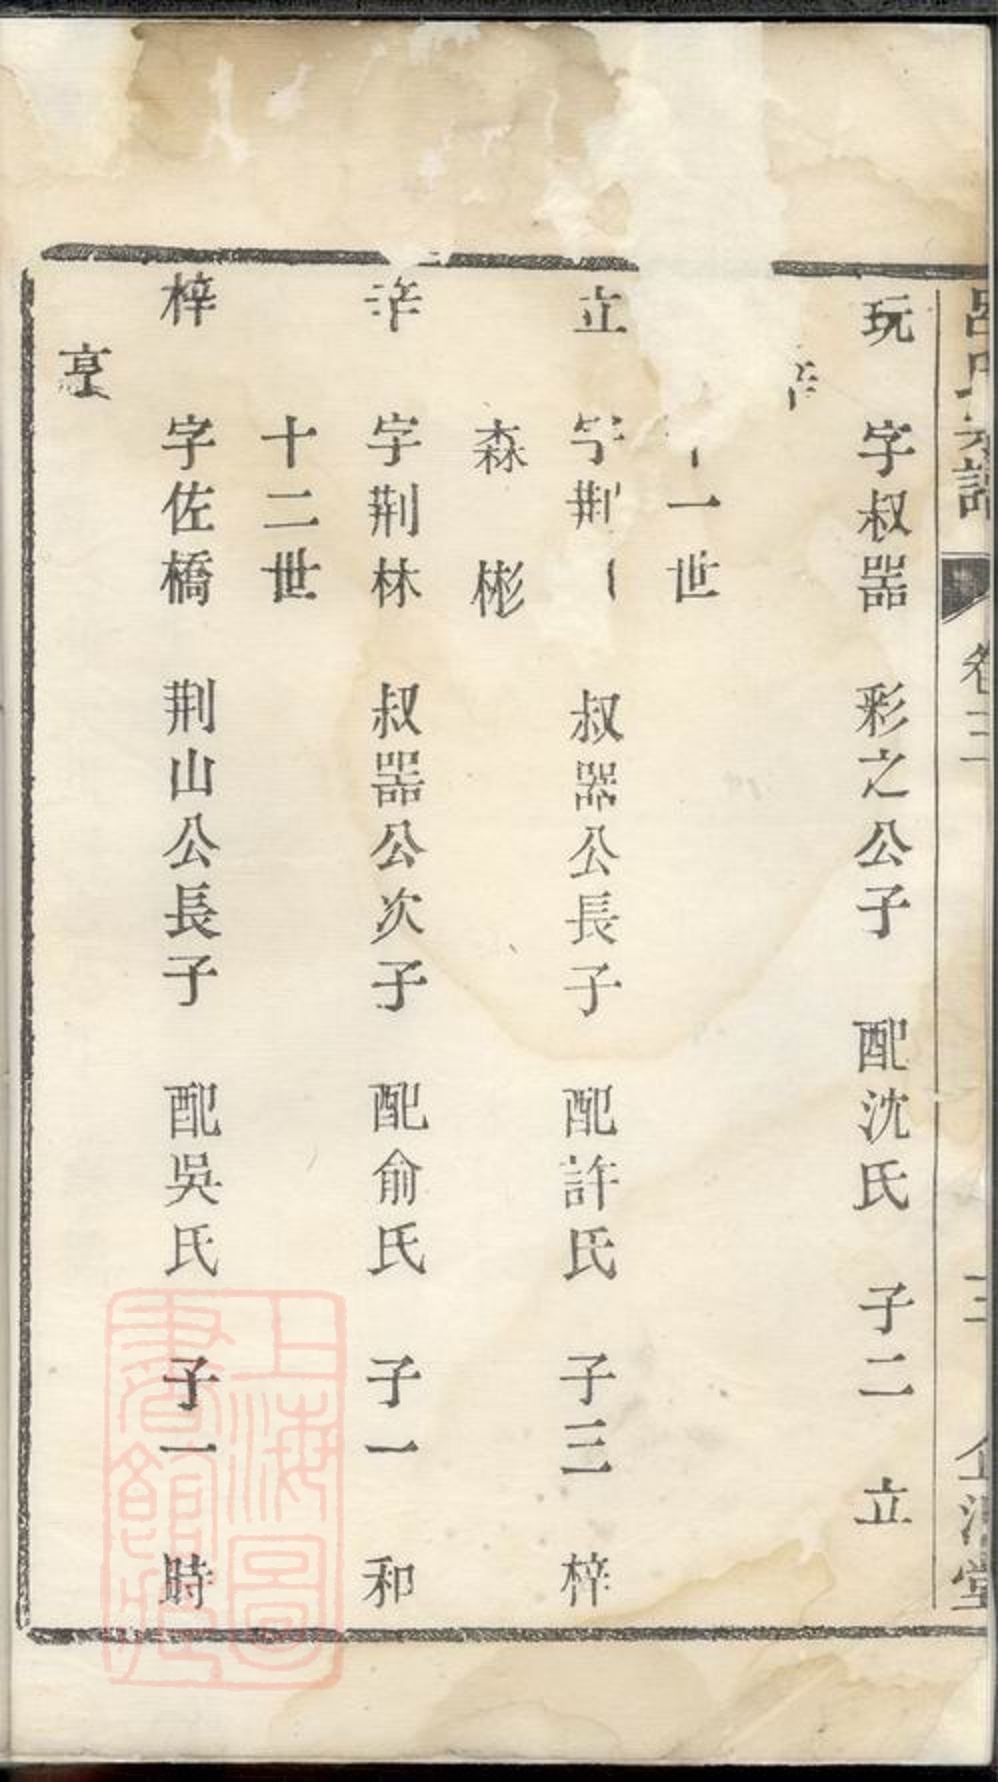 呂氏宗譜 卷三 三
玩 字叔器 彩之公子 配沈氏 子二 立
一世
立 字荆 叔器公長子 配許氏 子三 梓
森 彬
字荆林 叔器公次子 配俞氏 子一 和
十二世
梓 字佐橋 荆山公長子 配吳氏 子一 時
亨
上海圖書館藏